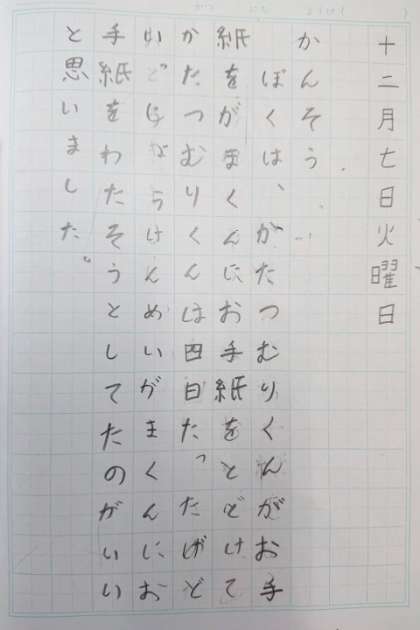 十二月七日火曜日
かんそう
ぼくは、かたつむりくんがお手
紙をがまくんにお手紙をとどけて
かたつむりくんは四日たったけど
いっしょうけんめいがまくんにお
手紙をわたそうとしてたのがいい
と思いました。